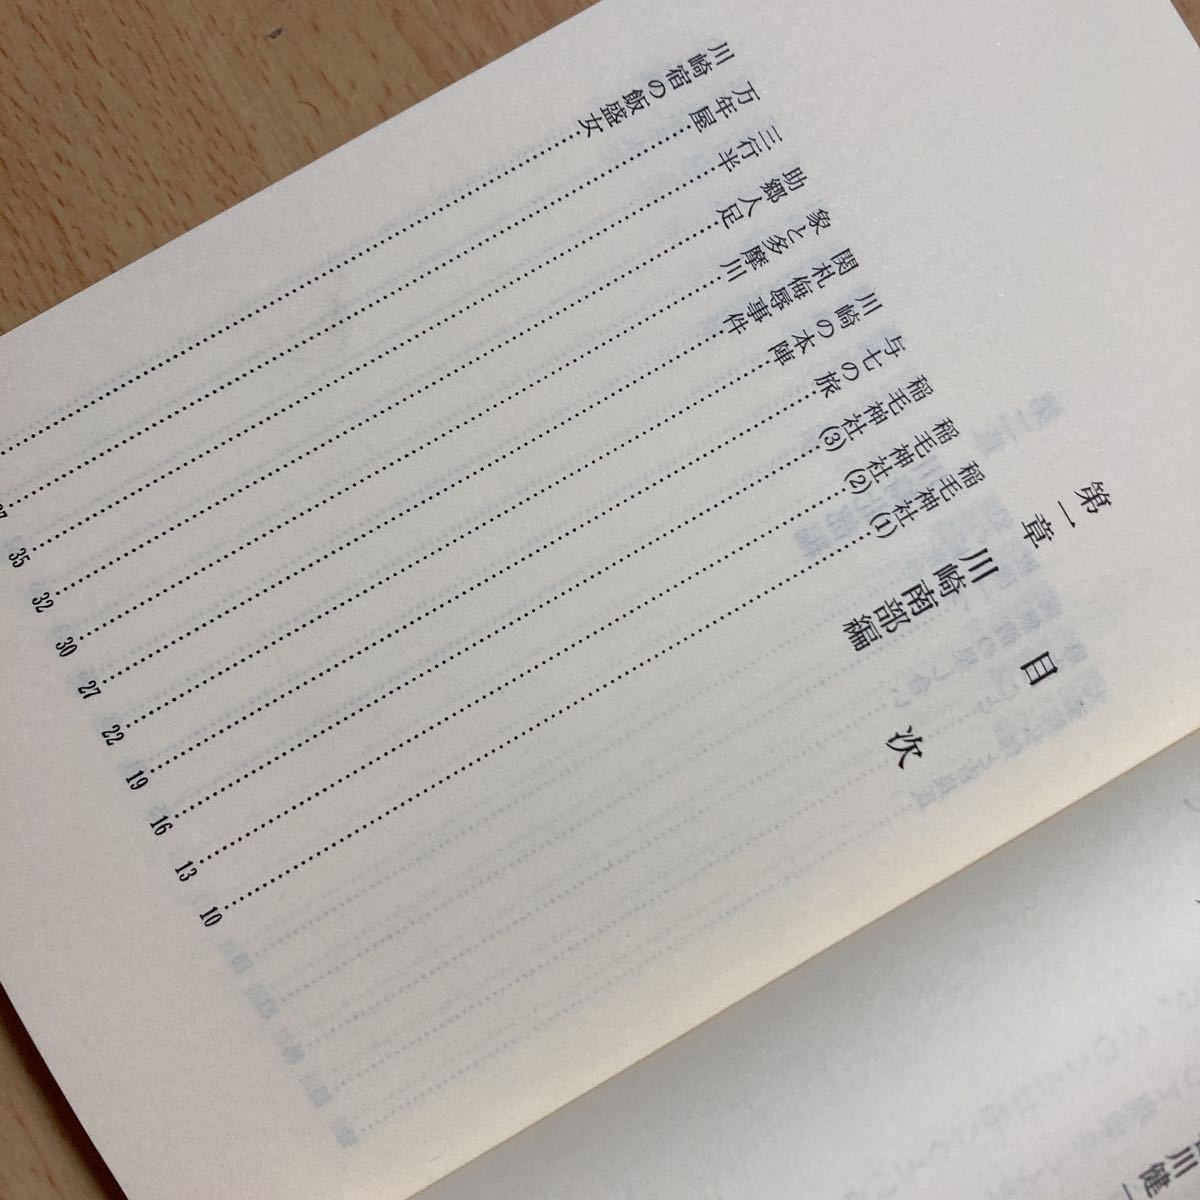 目次
第一章 川崎南部編
稲毛神社(1)……10
稲毛神社(2)……13
稲毛神社(3)……16
与七の旅……19
川崎の本陣……22
関札侮辱事件……27
象と多摩川……30
助郷人足……32
三行半……35
万年屋……37
川崎宿の飯盛女……
川健